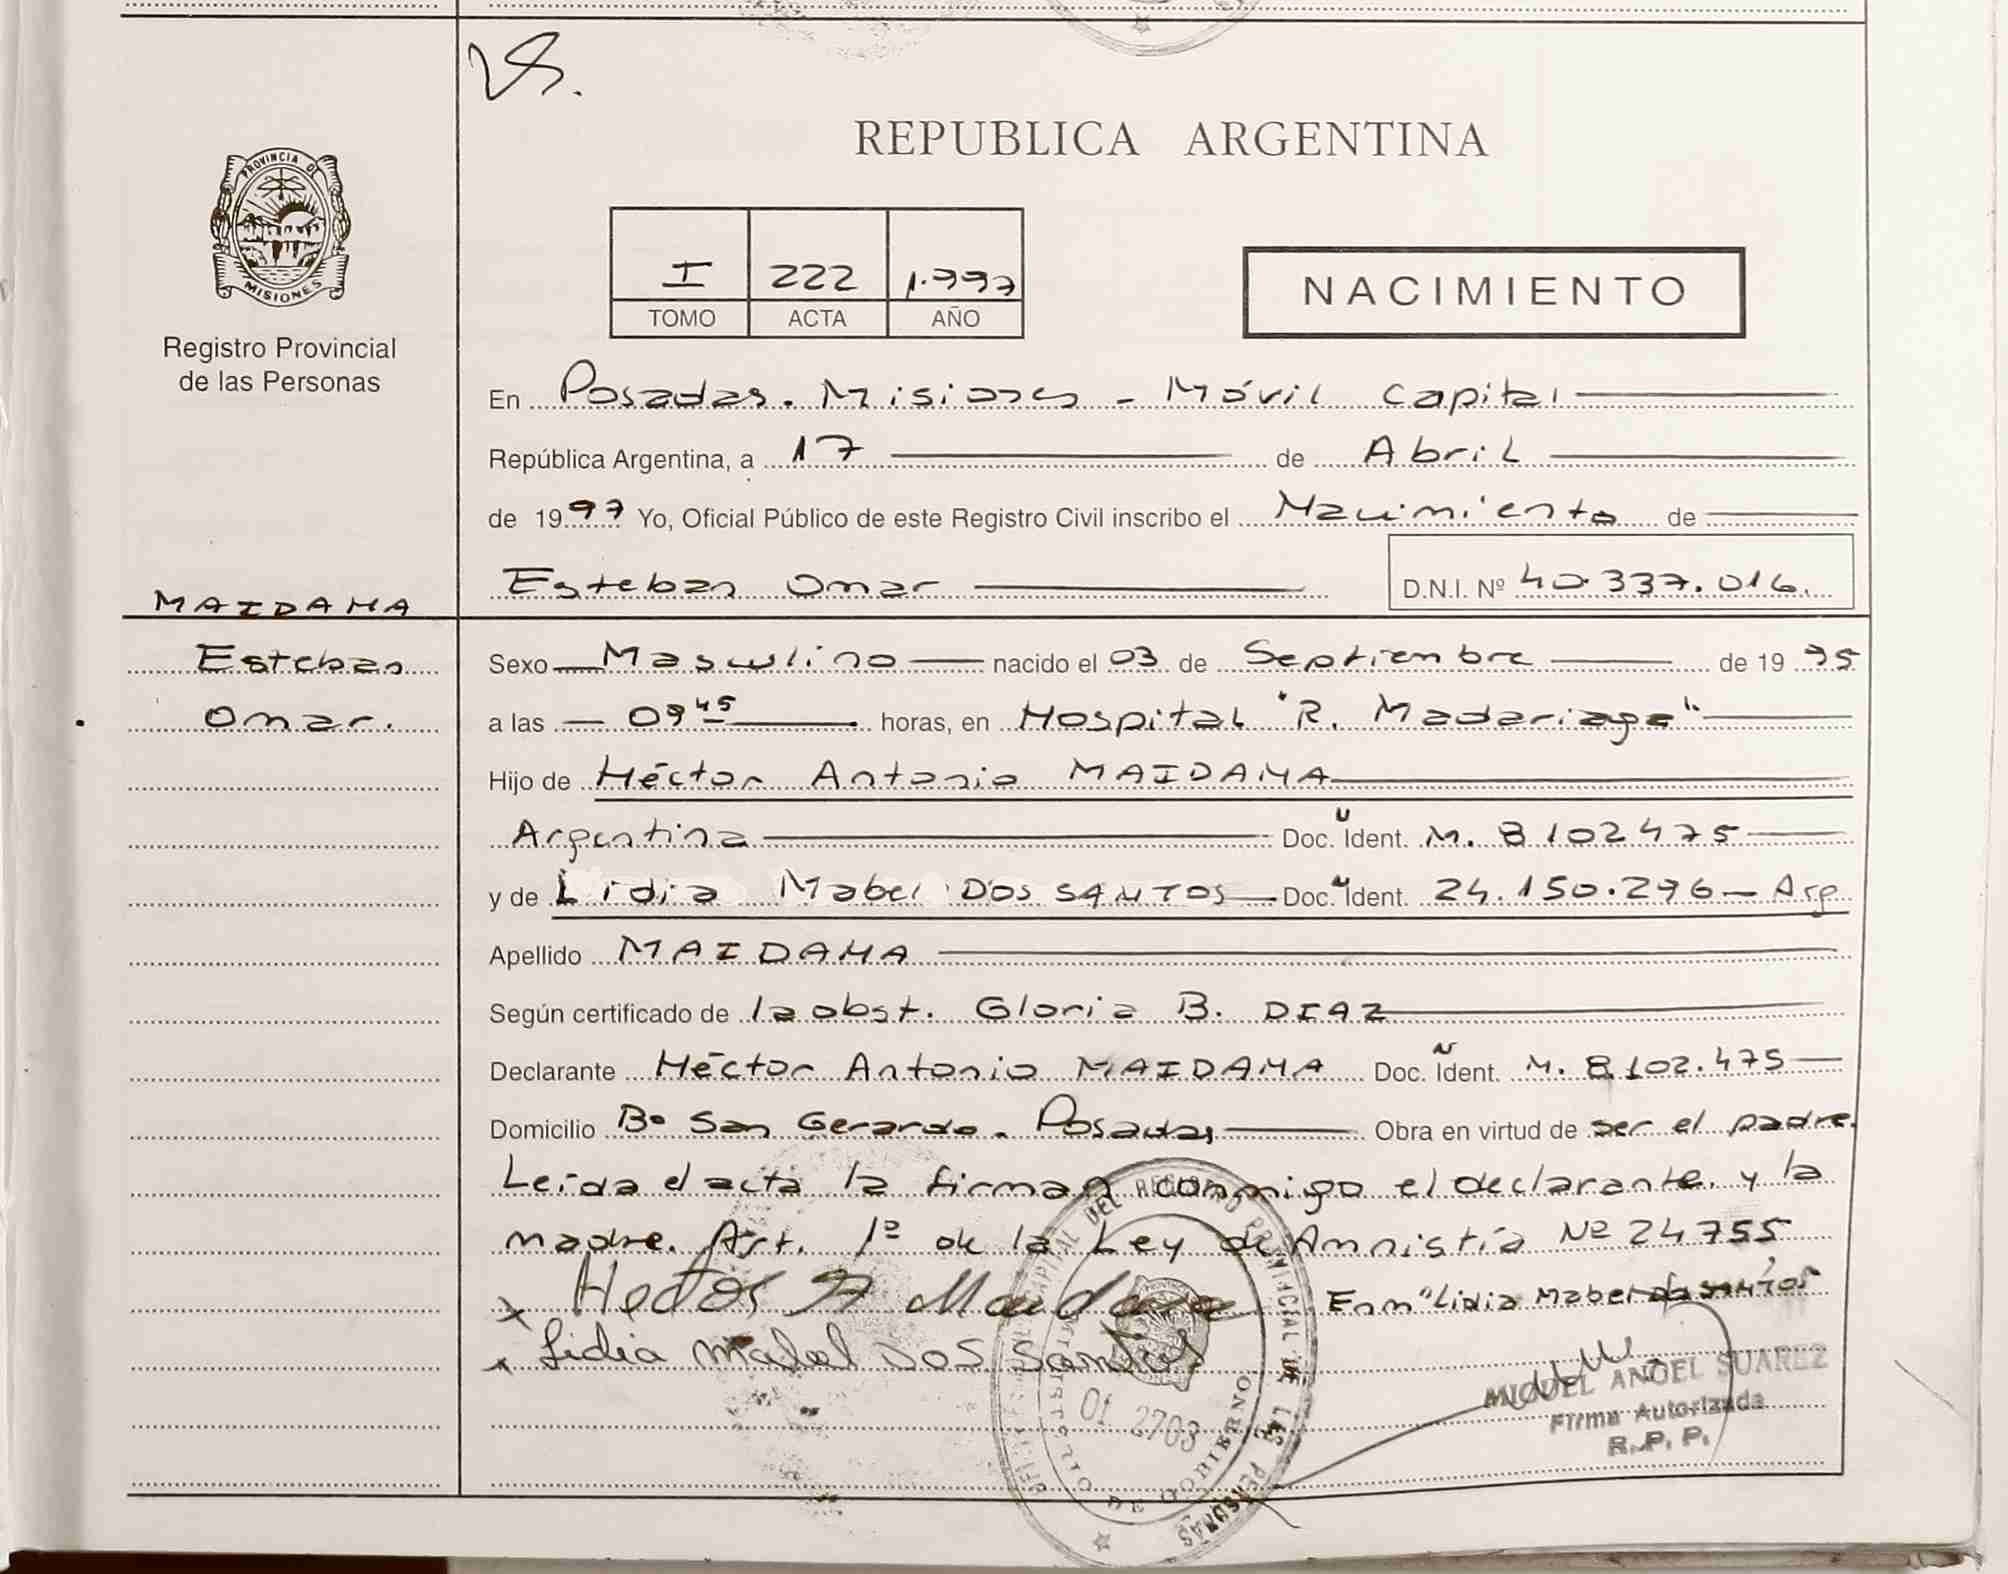 VS.
REPUBLICA ARGENTINA
PROVINCIA DE
MISIONES
Registro Provincial
de las Personas
I 222 1.997
TOMO ACTA AÑO
NACIMIENTO
En Posadas. Misiones - Móvil Capital
República Argentina, a 17 de Abril
de 1997 Yo, Oficial Público de este Registro Civil inscribo el Nacimiento de
Esteban Omar D.N.I. Nº 40.337.016.
MAIDANA
Esteban
Omar.
Sexo Masculino nacido el 03 de Septiembre de 1995
a las 09 45 horas, en Hospital "R. Madariaga"
Hijo de Héctor Antonio MAIDANA
Argentina Doc. Ident. M. 8102475
y de Lidia Mabel DOS SANTOS Doc. Ident. 24.150.296 - Arg.
Apellido MAIDANA
Según certificado de la obst. Gloria B. DIAZ
Declarante Héctor Antonio MAIDANA Doc. Ident. M. 8.102.475
Domicilio Bº San Gerardo. Posadas Obra en virtud de ser el padre.
Leída el acta la firman conmigo el declarante y la
madre. Art. 1º de la Ley de Amnistía Nº 24755
x Hector A Maidana Enm "Lidia Mabel dos santos"
x Lidia Mabel DOS Santos
MIGUEL ANGEL SUAREZ
Firma Autorizada
R. P. P.
CAPITAL DEL REGISTRO PROVINCIAL DE LAS PERSONAS
MINISTERIO DE GOBIERNO
01 2703